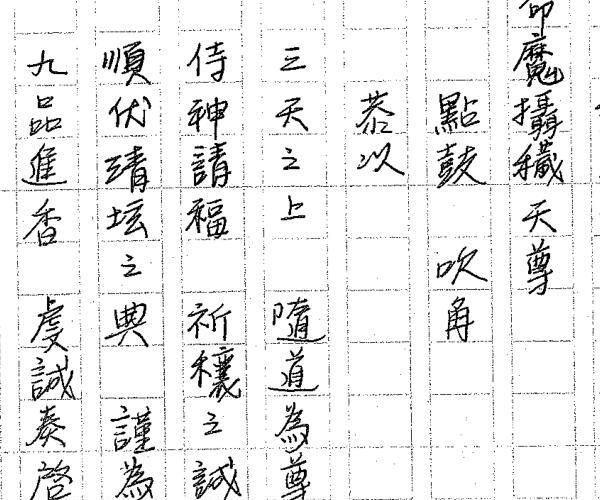 命魔攝穢天尊
點鼓 吹角
恭以
三天之上 隨道為尊
侍神請福 祈穰之誠
順伏靖坛之典 謹為
九品進香 虔誠奏啓